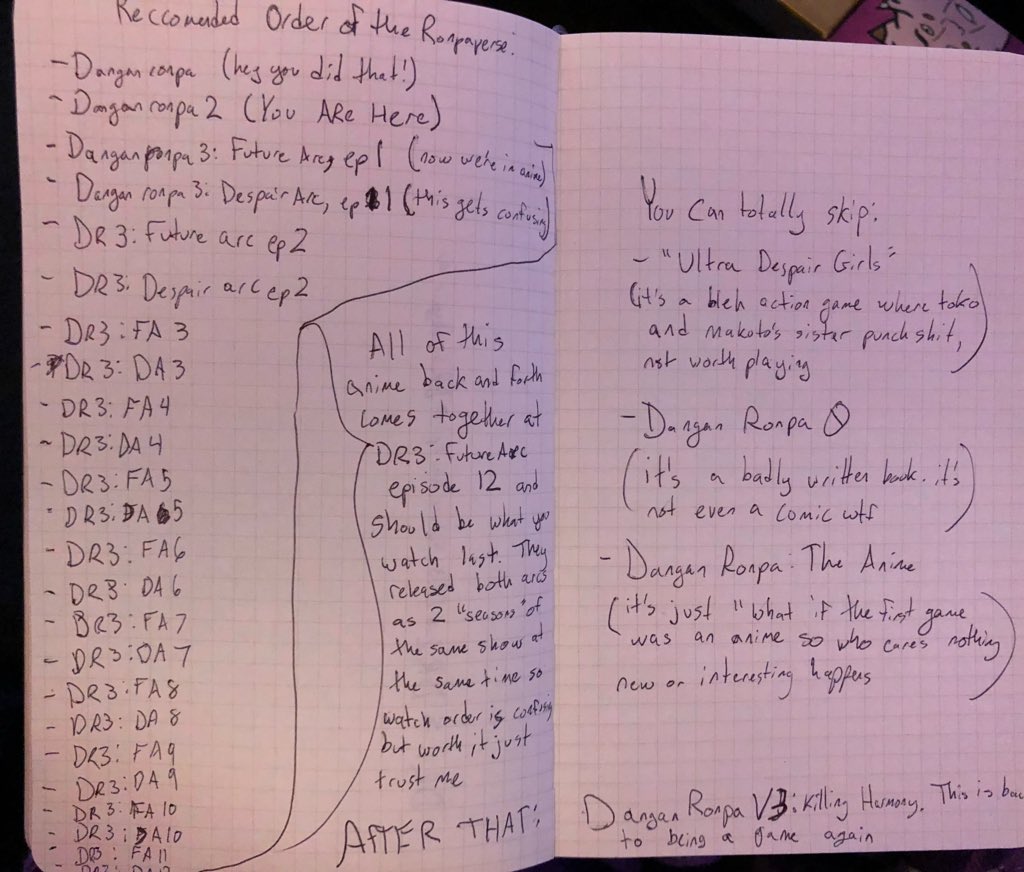 Reccomended Order of the Ronpaverse:
- Danganronpa (hey you did that!)
- Danganronpa 2 (You ARe Here)
- Danganronpa 3: Future Arc, ep 1 (now we're in anime)
- Dangan ronpa 3: Despair Arc, ep 1 (this gets confusing)
- DR3: Future arc ep 2
- DR3: Despair arc ep 2
- DR3: FA 3
- DR3: DA 3
- DR3: FA 4
- DR3: DA 4
- DR3: FA 5
- DR3: DA 5
- DR3: FA 6
- DR3: DA 6
- DR3: FA 7
- DR3: DA 7
- DR3: FA 8
- DR3: DA 8
- DR3: FA 9
- DR3: DA 9
- DR3: FA 10
- DR3: DA 10
- DR3: FA 11
All of this
anime back and forth
comes together at
DR3: Future Arc
episode 12 and
should be what you
watch last. They
released both arcs
as 2 "seasons" of
the same show at
the same time so
watch order is confusing
but worth it just
trust me
AFTER THAT:
You Can totally skip:
- "Ultra Despair Girls"
(it's a bleh action game where toko
and makoto's sister punch shit,
not worth playing)
- Dangan Ronpa 0
(it's a badly written book. it's
not even a comic wtf)
- Dangan Ronpa: The Anime
(it's just "what if the first game
was an anime so who cares nothing
new or interesting happens)
Dangan Ronpa V3: Killing Harmony. This is
to being a game again